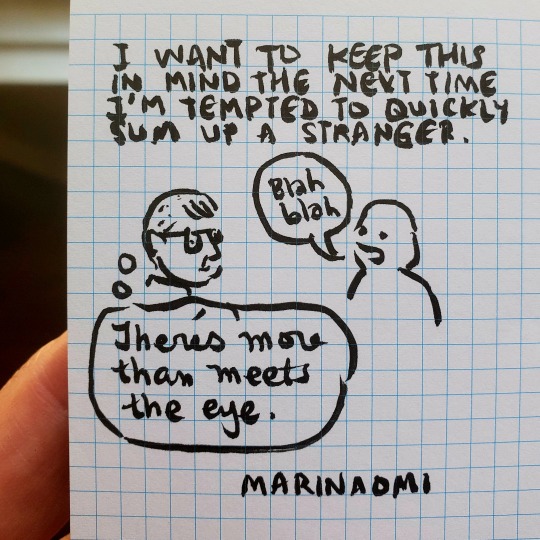 I WANT TO KEEP THIS
IN MIND THE NEXT TIME
I'M TEMPTED TO QUICKLY
SUM UP A STRANGER.
Blah
blah
Theres more
than meets
the eye.
MARINAOMI